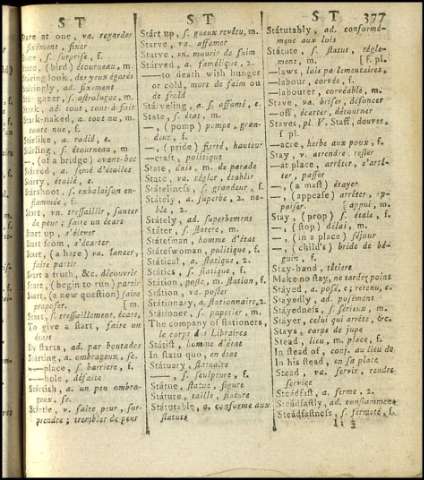 S T
S T
S T 377
Stare at one, va. regarder
fixément, fixer
Stare, ſ. ſurpriſe, f.
—, (bird) étourneau, m.
Staring look, des yeux égarés
Staringly, ad. fixement
Star-gazer, ſ. aſtrologue, m.
Stark, ad. tout, tout-à-fait
Stark-naked, a. tout nu, m.
toute nue, f.
Starlike, a. radié, e.
Starling, ſ. étourneau, m.
—, (of a bridge) avant-bec
Starred, a. ſemé d'étoiles
Starry, étoilé, e.
Starſhoot, ſ. exhalaiſon en-
flammée, f.
Start, va. treſſaillir, ſauter
de peur; faire un écart
Start up, s'élever
Start from, s'écarter
Start, (a hare) va. lancer,
faire partir
Start a truth, &c. découvrir
Start, (begin to run) partir
Start, (a new queſtion) faire
propoſer, [m.
Start, ſ. treſſaillement, écart,
To give a ſtart, faire un
écart
By ſtarts, ad. par boutades
Starting, a. ombrageux, ſe.
—place, ſ. barriere, f.
—hole, défaite
Startiſh, a. un peu ombra-
geux, ſe.
Startle, v. faire peur, ſur-
prendre; trembler de peur
Start up, ſ. gueux revêtu, m.
Starve, va. affamer
Starve, vn. mourir de faim
Starved, a. famélique, 2.
—to death with hunger
or cold, mort de faim ou
de froid
Starveling, a. ſ. affamé, e.
State, ſ. état, m.
—, (pomp) pompe, gran-
deur, f.
—, (pride) fierté, hauteur
—craft, politique
State, dais, m. de parade
State, va. régler, établir
Statelineſs, ſ. grandeur, f.
Stately, a. ſuperbe, 2. no-
ble, 2.
Stately, ad. ſuperbement
Stater, ſ. ſtatere, m.
Stateſman, homme d'état
Stateſwoman, politique, f.
Statical, a. ſtatique, 2.
Statics, ſ. ſtatique, f.
Station, poſte, m. ſtation, f.
Station, va. poſter
Stationary, a. ſtationnaire, 2.
Stationer, ſ. papetier, m.
The company of ſtationers,
le corps des Libraires
Statiſt, homme d'état
In ſtatu quo, en état
Statuary, ſtatuaire
—, ſ. ſculpture, f.
Statue, ſtatue, figure
Stature, taille, ſtature
Statutable, a. conforme aux
ſtatuts
Statutably, ad. conformé-
ment aux lois
Statute, ſ. ſtatut, régle-
ment, m. [f. pl.
—laws, lois parlementaires,
—labour, corvée, f.
—labourer, corvéable, m.
Stave, va. briſer, défoncer
—off, écarter, détourner
Staves, pl. V. Staff, douves,
f. pl.
—acre, herbe aux poux, f.
Stay, v. attendre, reſter
—at place, arrêter, s'arrê-
ter, paſſer
—, (a maſt) étayer
—, (appeaſe) arrêter, ap-
paiſer [appui, m.
Stay, (prop) ſ. étaie, f.
—, (ſtop) délai, m.
—, (in a place) ſéjour
—, (child's) bride de bé-
guin, f.
Stay-band, têtiere
Make no ſtay, ne tardez point
Stayed, a. poſé, e; retenu, e.
Stayedly, ad. poſément
Stayedneſs, ſ. ſérieux, m.
Stayer, celui qui arrête, &c.
Stays, corps de jupe
Stead, lieu, m. place, f.
In ſtead of, conj. au lieu de
In his ſtead, en ſa place
Stead, va. ſervir, rendre
ſervice
Steadfaſt, a. ferme, 2.
Steadfaſtly, ad. conſtamment
Steadfaſtneſs, ſ. fermeté, f.